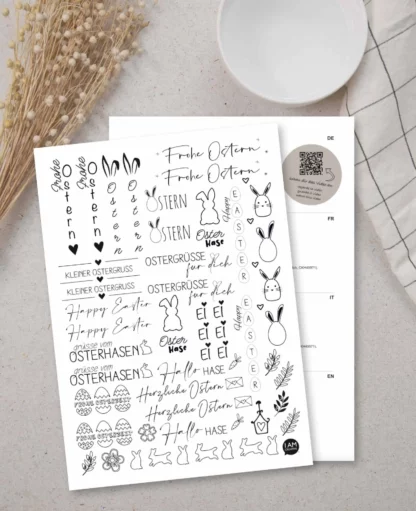 Frohe Ostern
Frohe Ostern
Frohe
Ostern
Frohe
Ostern
Ostern
Ostern
OSTERN
OSTERN
Oster
Hase
Happy
EASTER
KLEINER OSTERGRUSS
KLEINER OSTERGRUSS
OSTERGRÜSSE
für dich
OSTERGRÜSSE
für dich
Happy Easter
Happy Easter
Oster
Hase
EI EI
EI EI
EI EI
Happy
EASTER
grüsse vom
OSTERHASEN
grüsse vom
OSTERHASEN
Hallo HASE
Herzliche Ostern
Herzliche Ostern
Hallo HASE
FROHE OSTERN
FROHE OSTERN
I AM
DE
FR
IT
EN